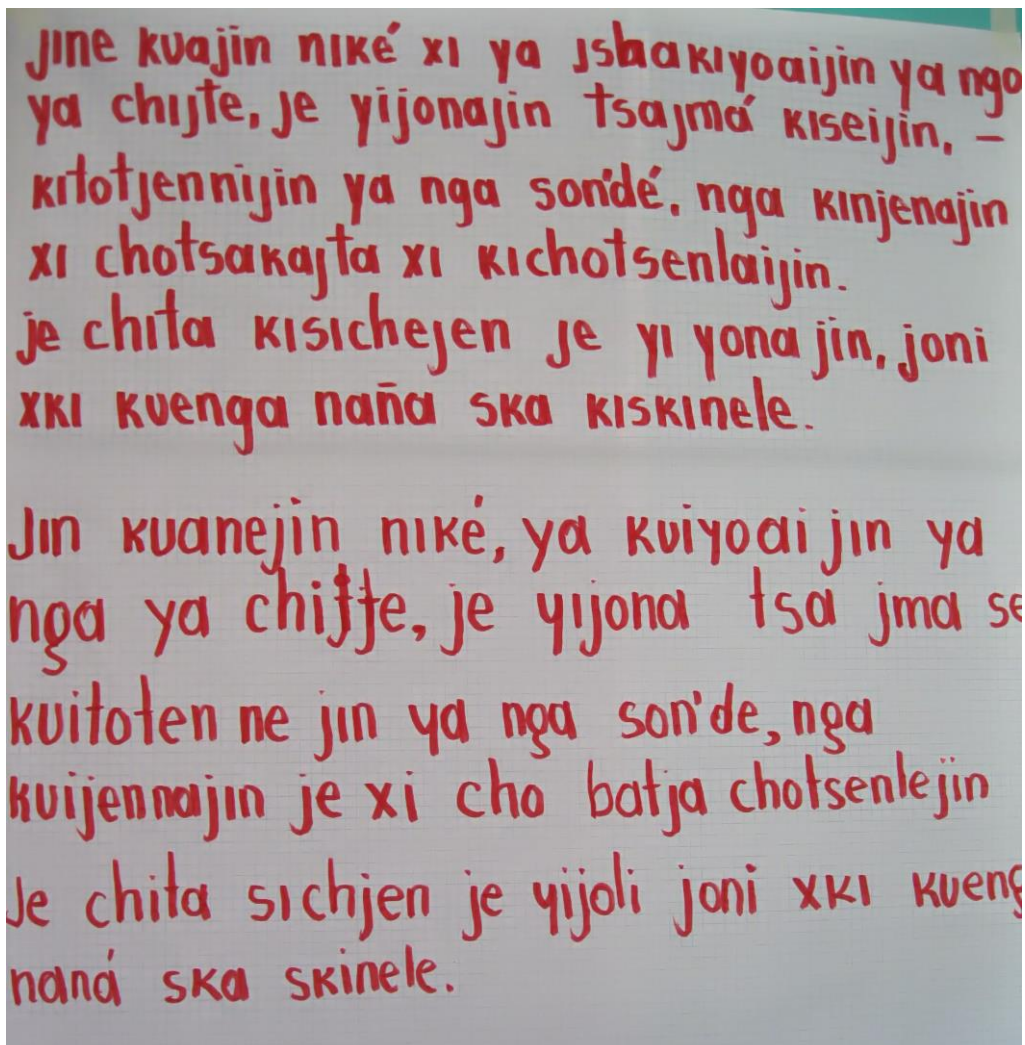 Jine kuajin niké xi ya Jshakiyoaijin ya ngo
ya chijte, je yijonajin tsajmá kiseijin, –
kitotjennijin ya nga son'dé, nga kinjenajin
xi chotsakajta xi kichotsenlaijin.
je chita kisichejen je yi yona jin, joni
xki kuenga naña ska kiskinele.
Jin kuanejin niké, ya kuiyoai jin ya
nga ya chijte, je yijona tsa jma se
kuitoten ne jin ya nga son'de, nga
kuijennajin je xi cho batja chotsenlejin
Je chita sichjen je yijoli joni xki kueng
naná ska skinele.